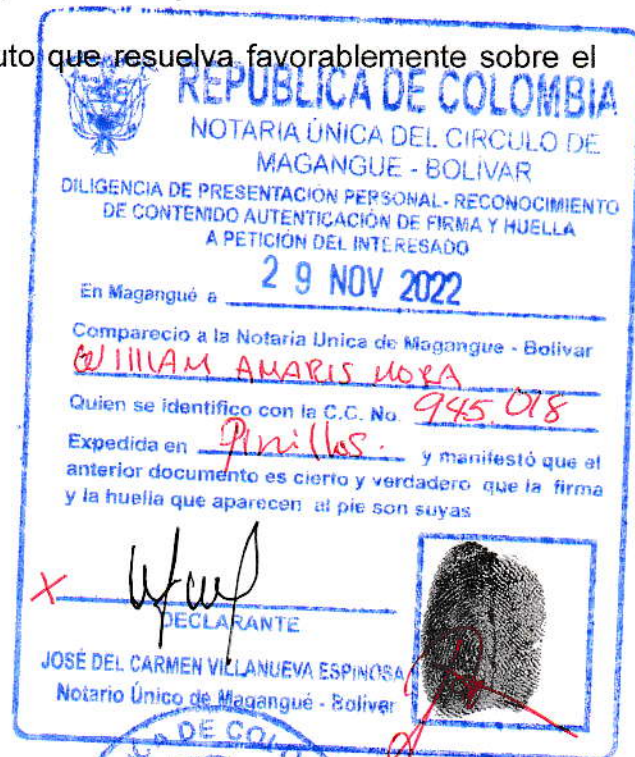 uto que resuelva favorablemente sobre el
REPÚBLICA DE COLOMBIA
NOTARIA ÚNICA DEL CIRCULO DE
MAGANGUE - BOLÍVAR
DILIGENCIA DE PRESENTACIÓN PERSONAL- RECONOCIMIENTO
DE CONTENIDO AUTENTICACIÓN DE FIRMA Y HUELLA
A PETICIÓN DEL INTERESADO
En Magangué a 29 NOV 2022
Comparecio a la Notaria Unica de Magangue - Bolivar
WILLIAM AMARIS MORA
Quien se identifico con la C.C. No. 945.018
Expedida en Pinillos. y manifestó que el
anterior documento es cierto y verdadero que la firma
y la huella que aparecen al pie son suyas
X
DECLARANTE
JOSÉ DEL CARMEN VILLANUEVA ESPINOSA
Notario Único de Magangué - Bolívar
CA DE COLO